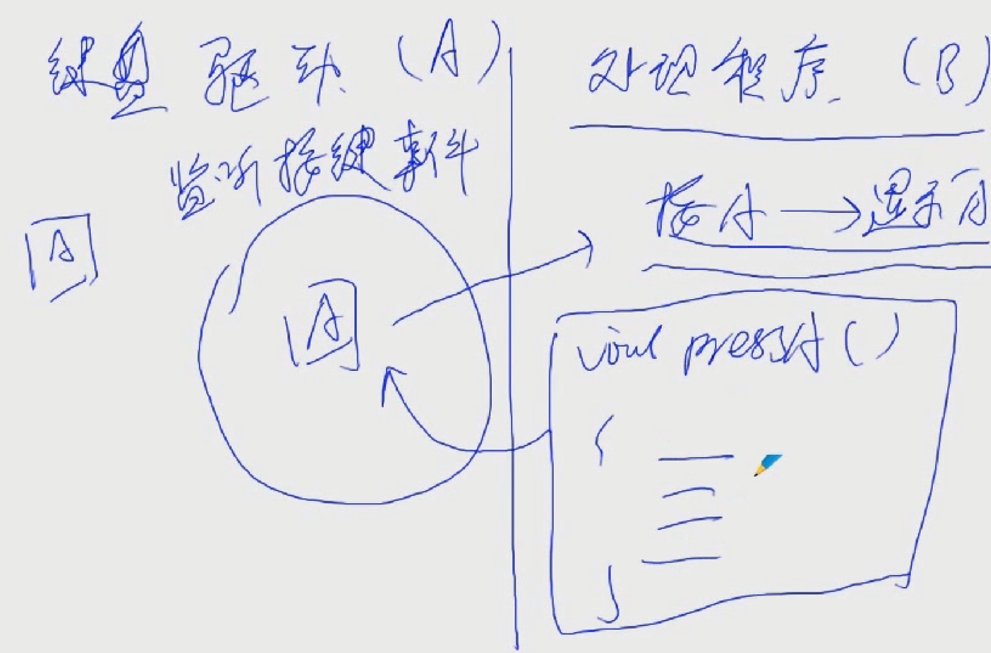 键盘驱动 (A)
监听按键事件
A
A
处理程序 (B)
按A → 显示A
void pressA()
{
}